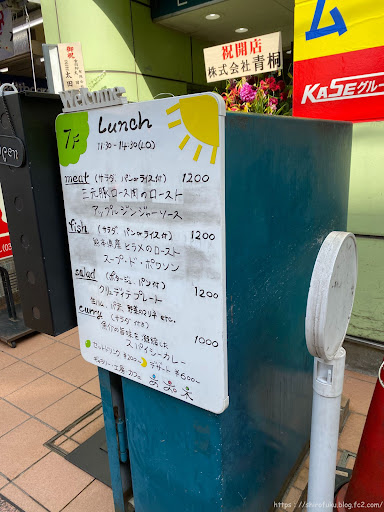 祝開店
株式会社 青桐
ム
KASEグループ
Welcome
7F Lunch
11:30-14:30(L.O)
meat (サラダ, パンorライス付) 1200
三元豚ロース肉のロースト
アップルジンジャーソース
fish (サラダ, パンorライス付) 1200
産ヒラメのロースト
スープ・ド・ポワソン
salad (ポタージュ, パン付) 1200
クリュディテプレート
生ハム, 野菜 etc.
curry (サラダ付き) 1000
スパイシーカレー
セットドリンク ¥200~ デザート ¥500~
カフェ
https://shirofuku.blog.fc2.com/